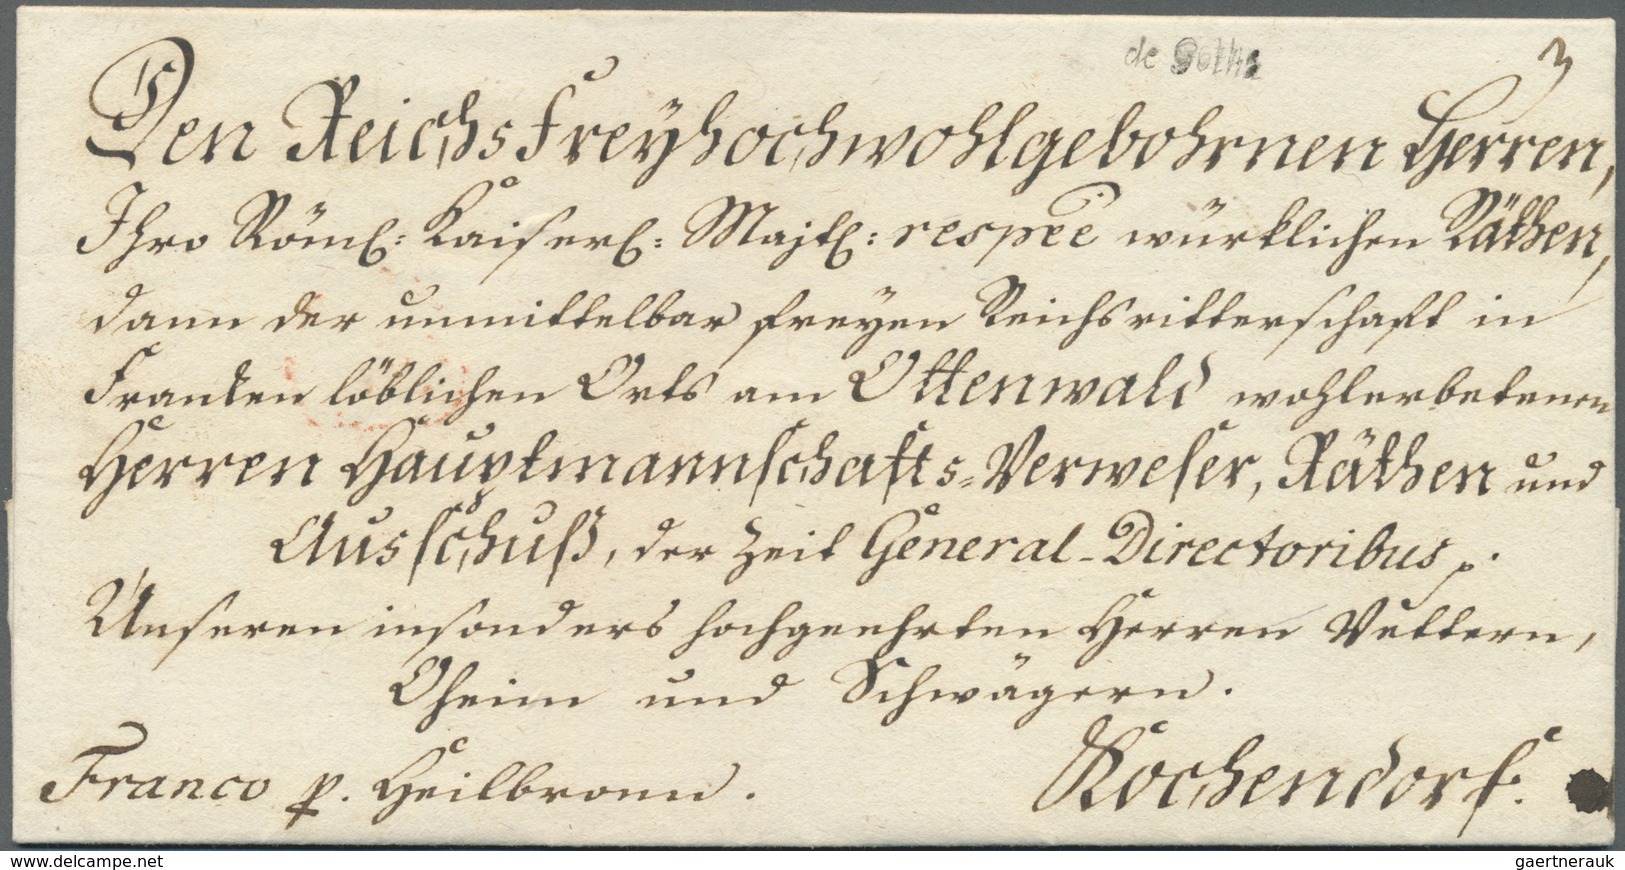 de Gotha
3
Den Reichs freyhochwohlgebohrnen Herren,
Ihro Röml: Kaiserl: Majtl: respée würklichen Räthen,
dann der unmittelbar freyen Reichsritterschaft in
Franken löblichen Orts am Ottenwald wohlerbetenen
Herren Hauptmannschafts=Verweser, Räthen und
Ausschuß, der Zeit General-Directoribus p.
Unseren insonders hochgeehrten Herren Vettern,
Oheim und Schwägern.
Franco p. Heilbronn.
Kochendorf.
www.delcampe.net
gaertnerauk